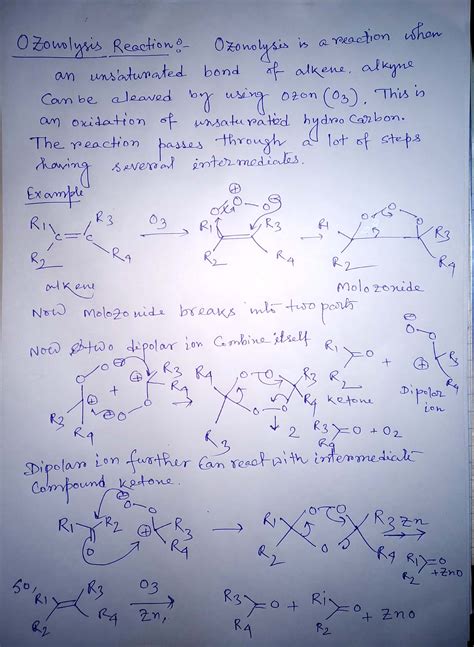 Ozonolysis Reaction:- Ozonolysis is a reaction when
an unsaturated bond of alkene, alkyne
Can be cleaved by using ozon (O3). This is
an oxidation of unsaturated hydro Carbon.
The reaction passes through a lot of steps
having several intermediates.
Example
R1 R3 C=C R2 R4 O3 → R1 R3 R2 R4 ⊕ O O O ⊖ → R1 O O O R3 R2 R4
alkene Molozonide
Now Molozonide breaks into two parts
Now two dipolar ion Combine itself R1 R2 =O + O O ⊖ ⊕ R3 R4
ketone Dipolar ion
O O ⊖ ⊕ R3 R4 + R3 R4 ⊕ ⊖ O O → R4 R3 O O O O R3 R4
↓ 2 R3 R4 =O + O2
Dipolar ion further Can react with intermediate
Compound ketone.
R1 R2 O ⊖ O O ⊕ R3 R4 → R1 R2 O O O R3 R4 Zn → R1 R2 =O + ZnO
So, R1 R2 R3 R4 O3 Zn, → R3 R4 =O + R1 R2 =O + ZnO